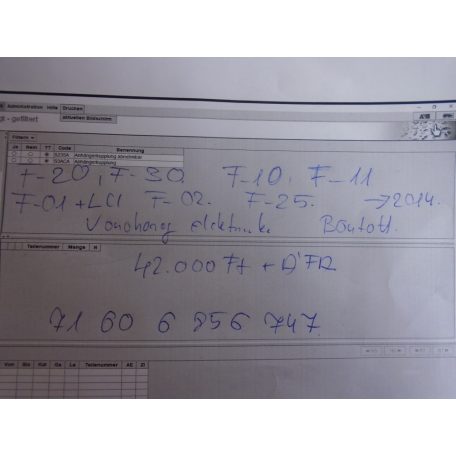 Administration Hilfe Drucken
gt - gefiltert
aktuellen Bildschirm
Filtern
Ja Nein TT Code Benennung
S235A Anhängerkupplung abnehmbar
S3ACA Anhängerkupplung
F-20, F-30 F-10, F-11
F-01 + LCI F-02. F-25. → 2014.
Vonóhorog elektronika Bontott.
Teilenummer Menge K
42.000 Ft + ÁFA
71 60 6 856 747
Von Bis KW Ga Le Teilenummer AE ZI